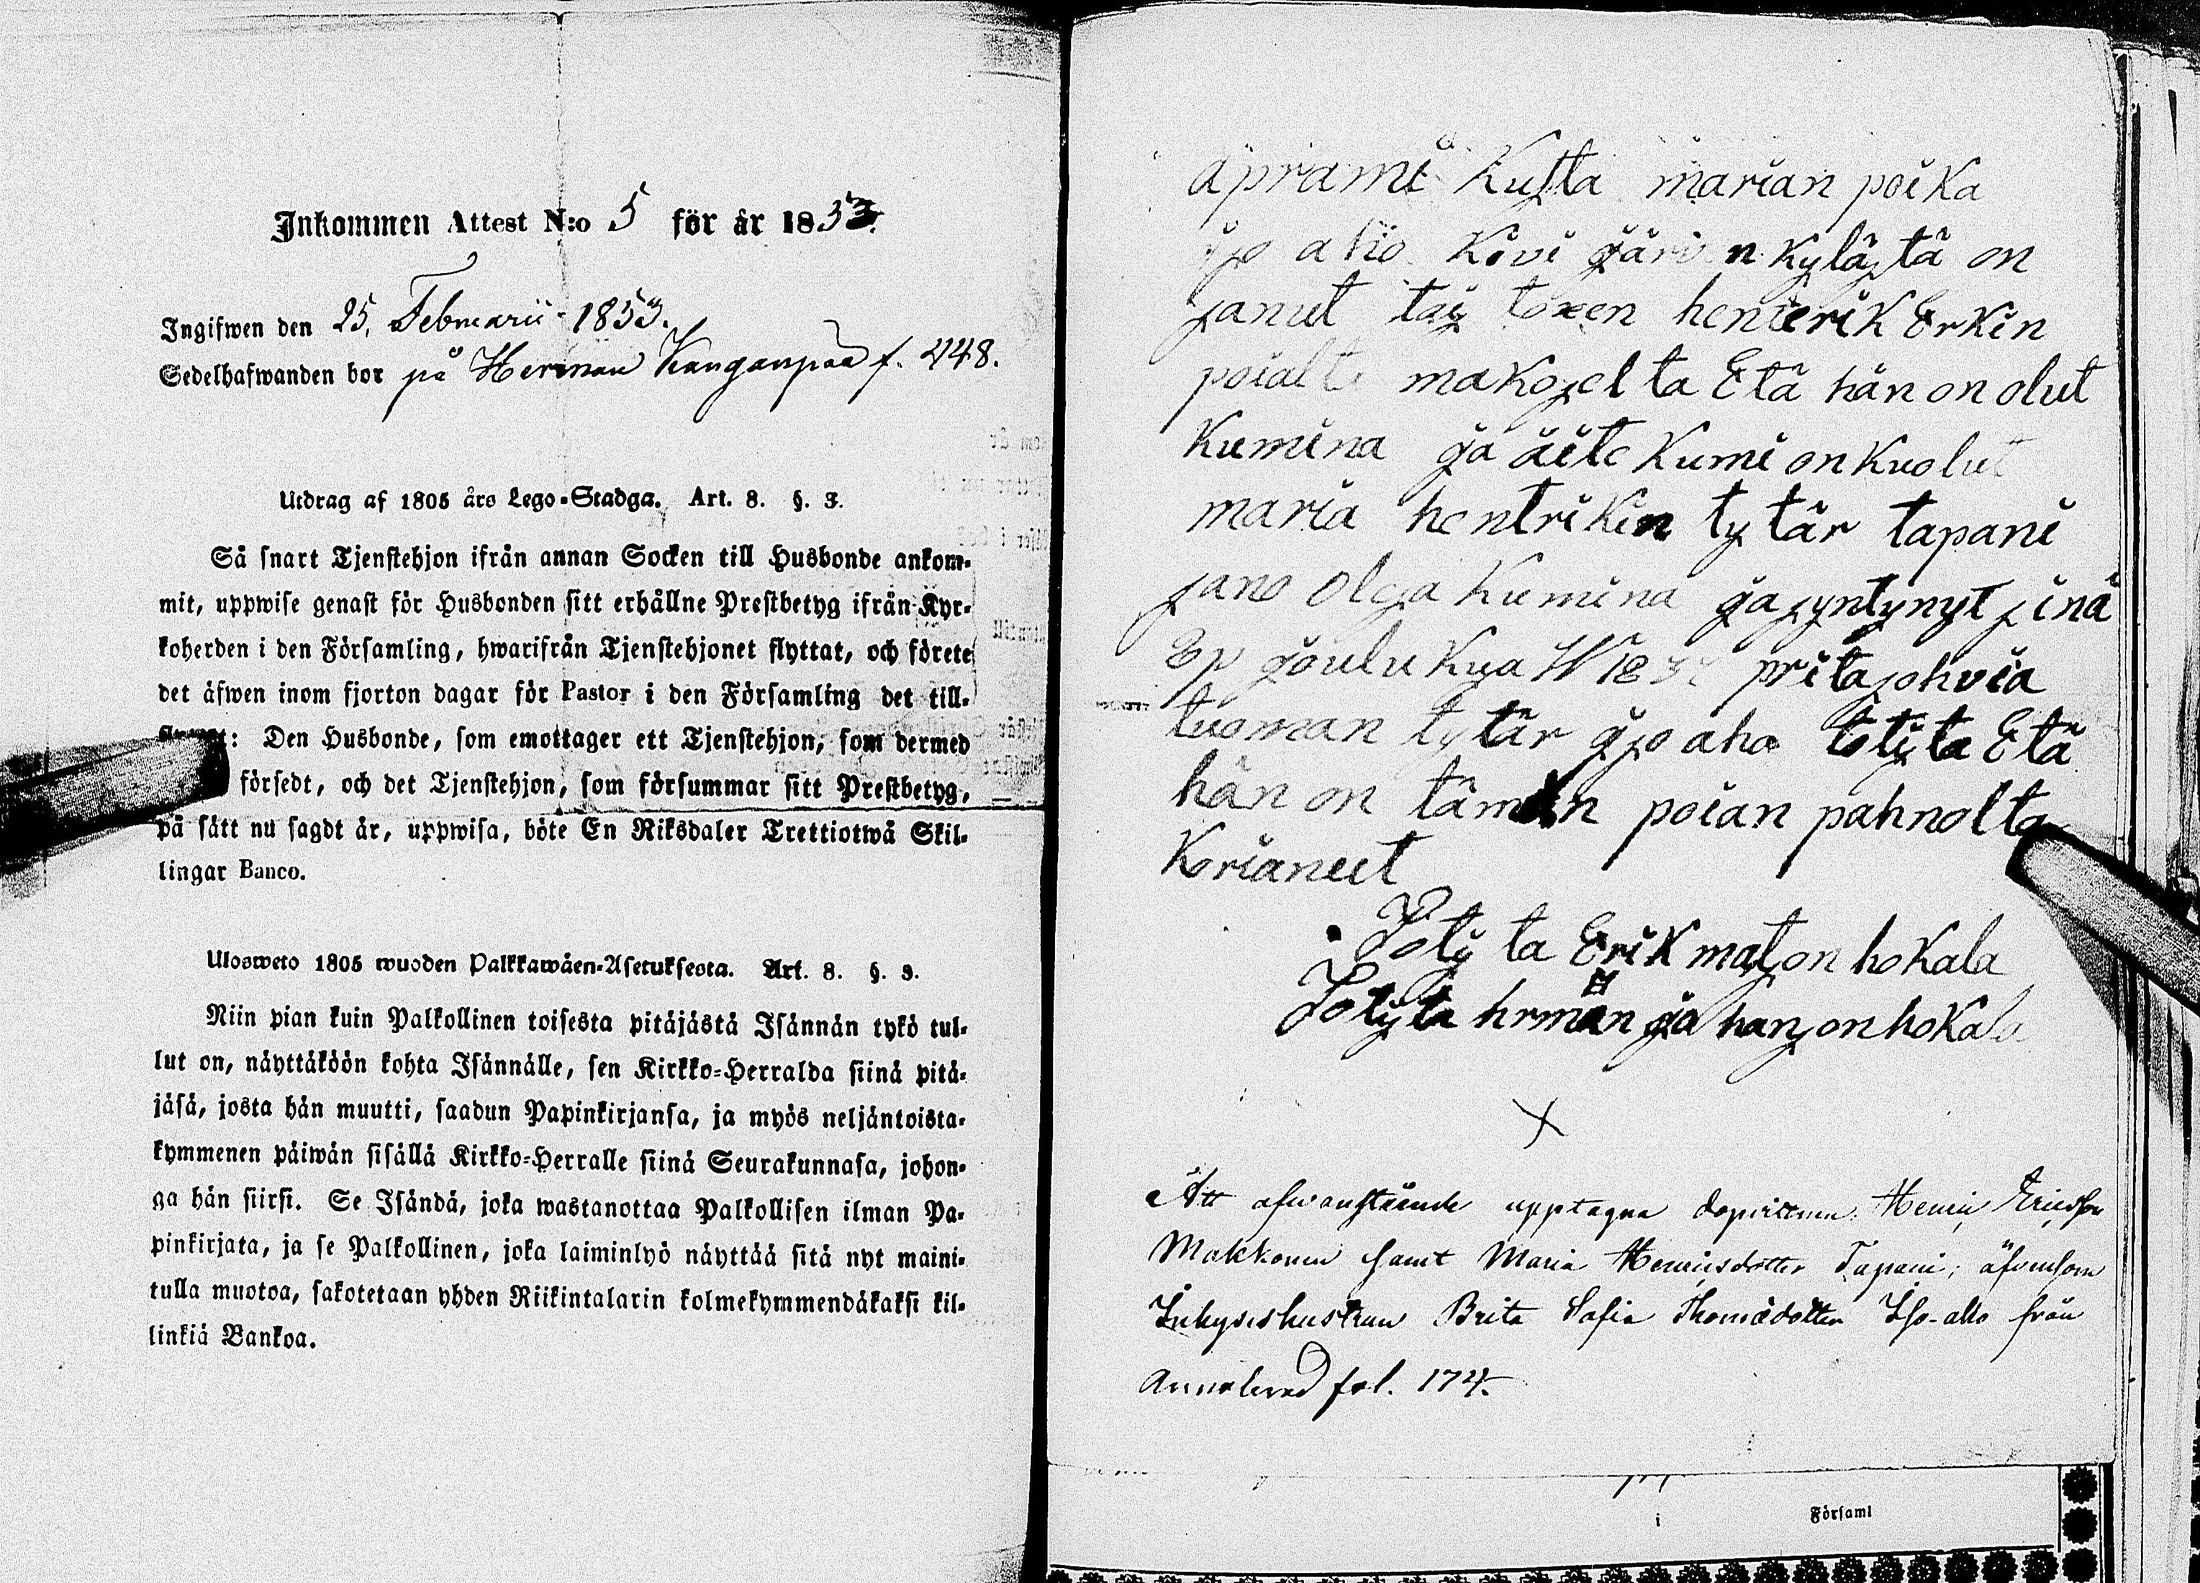 Inkommen Attest N:o 5 för år 1853.
Ingifwen den 25. Februarii 1853.
Sedelhafwanden bor på Herman Kanganpää f. 448.
Utdrag af 1805 års Lego-Stadga. Art. 8. §. 3.
Så snart Tjenstehjon ifrån annan Socken till Husbonde ankom-
mit, uppwise genast för Husbonden sitt erhållne Prestbetyg ifrån Kyr-
koherden i den Församling, hwarifrån Tjenstehjonet flyttat, och förete
det äfwen inom fjorton dagar för Pastor i den Församling det till-
: Den Husbonde, som emottager ett Tjenstehjon, som dermed
försedt, och det Tjenstehjon, som försummar sitt Prestbetyg,
på sätt nu sagdt är, uppwisa, böte En Riksdaler Trettiotwå Skil-
lingar Banco.
Ulosweto 1805 wuoden Palkkawäen-Asetuksesta. Art. 8. §. 3.
Niin pian kuin Palkollinen toisesta pitäjästä Isännän tykö tul-
lut on, näyttäköön kohta Isännälle, sen Kirkko-Herralda siinä pitä-
jäsä, josta hän muutti, saadun Papinkirjansa, ja myös neljäntoista-
kymmenen päiwän sisällä Kirkko-Herralle siinä Seurakunnasa, johon-
ga hän siirsi. Se Isändä, joka wastanottaa Palkollisen ilman Pa-
pinkirjata, ja se Palkollinen, joka laiminlyö näyttää sitä nyt maini-
tulla muotoa, sakotetaan yhden Riikintalarin kolmekymmendäkaksi kil-
linkiä Bankoa.
aprami Kusta marian poika
iso aho Kivi järin kylästä on
sanut tois toxen henterik Erkin
poialta makosel ta Etä hän on olut
Kumina ja äite Kumi on kuolut
maria hentrikin tytär tapani
sano olesa Kumina ja syntynyt sinä
Ep joulu Kua 18 prita sohvia
tuoman tytär iso aha totista Etä
hän on tämän poian pahnolta
Korianut
Totista Erik matson hokala
Totista hrmän ja hanson hokala
Att ofwanstående upptagna dopvittnen Henric Ericsson
Makkonen samt Maria Henricsdotter Tapani, äfwensom
Inhyseshustrun Brita Sofia Thomædotter Iso-aho från
fol. 174.
i Församl